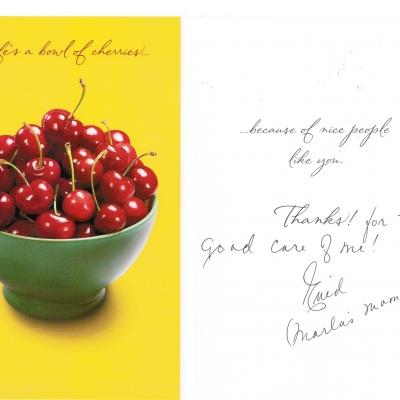 fe's a bowl of cherries...
...because of nice people
like you.
Thanks! for
good care of me!
Enid
(Marla's mom